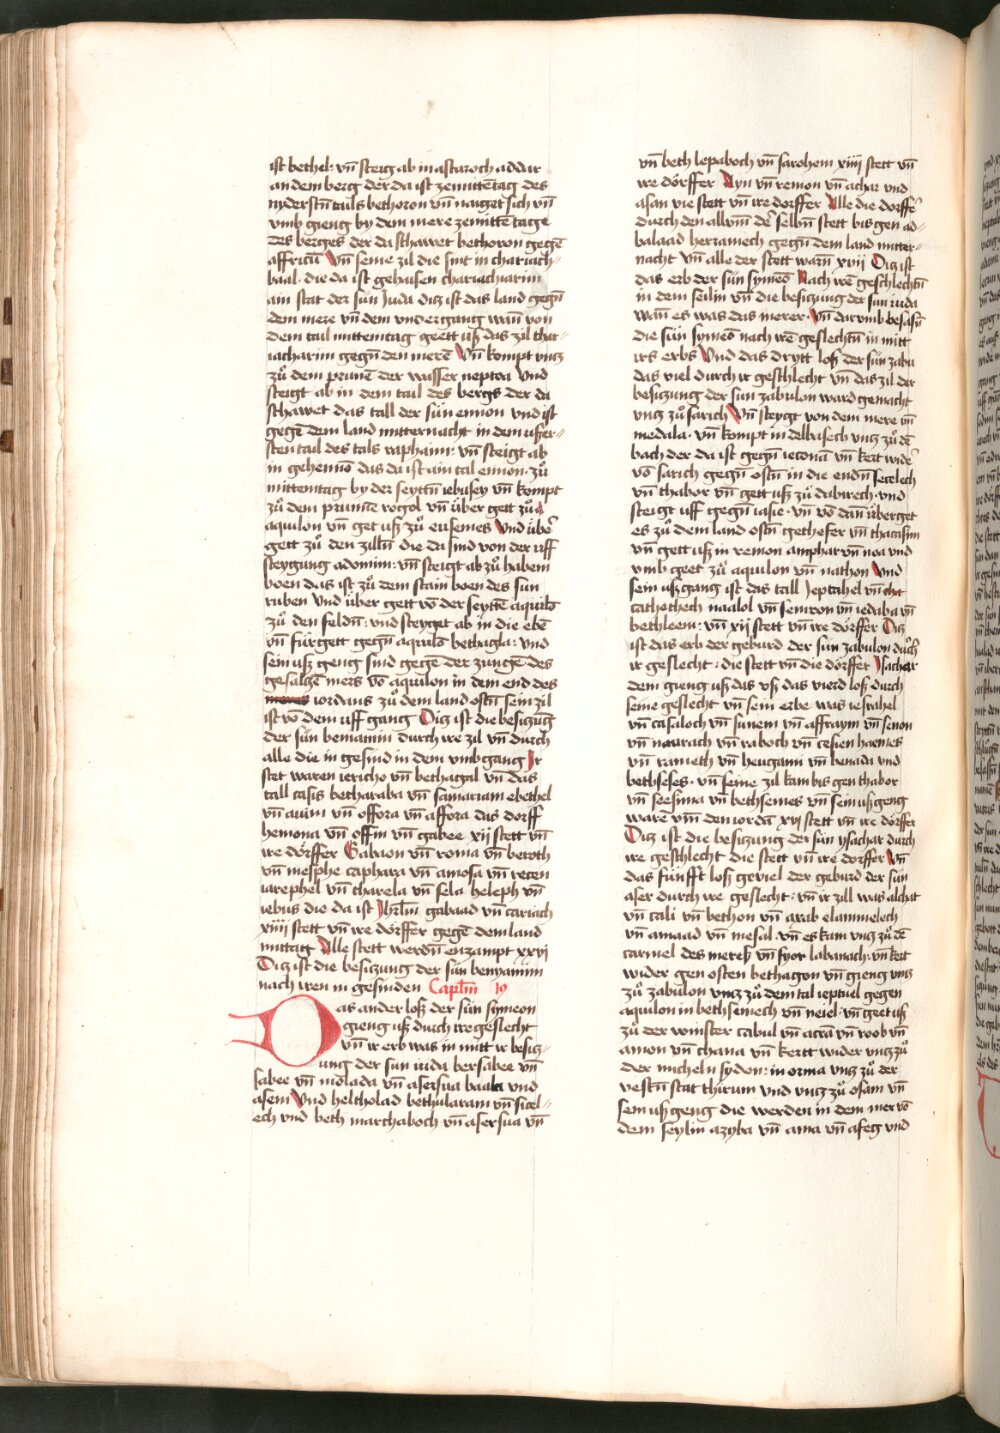 ist bethel: vn̄ steig ab in astaroch addar
an dem berg der da ist ze mittētag des
nyderstn̄ tails bethoron vn̄ nayget sich vn̄
vmb gieng by dem mere ze mittētage
des berges der da schawet bethoron gegē
affricū Vn̄ seine zil die sint in chariach-
baal · die da ist gehaisen chariacharim
ain stat der sün Juda Diz ist das land gegn̄
dem mere vn̄ dem vndergang wan̄ von
dem tail mittemtag geett uß das zil char-
iacharim gegn̄ den merē Vn̄ kompt vncz
zů dem prunē der wasser neptoa Vnd
steigt ab in dem tail des bergs der da
schawet das tall der sün ennon vnd ist
gegē dem land mitternacht in dem ußer-
sten tail des tals raphaim: vn̄ steigt ab
in gehennō das da ist ain tal ennon · zů
mittemtag by der seyttn̄ iebusey vn̄ kompt
zů dem prunne rogol vn̄ über gett zů
aquilon vn̄ get uß zů ensemes Vnd übe᷑
gett zů den zilln̄ die da sind von der uff
steygung adonim: vn̄ steigt ab zů habem
boen das ist zů dem stain boen des sun
ruben Vnd über gett vō der seyttē aquilō
zů den feldn̄: vnd steyget ab in die ebē
vn̄ fürgett gegn̄ aquilō bethagla: vnd
sein uß geng sind gegē der zungē des
gesalczē mers vō aquilon in dem end des
iordans zů dem land ostn̄ sein zil
ist vō dem uff gang Diz ist die besiczūg
der sün beniamin durch ire zil vn̄ durch
alle die in gesind in dem umbgang Jr
stet waren iericho vn̄ bethagal vn̄ das
tall casis betharaba vn̄ samariam ebethel
vn̄ auim vn̄ offora vn̄ affora das dorff
hemona vn̄ offin vn̄ gabee xij stett vn̄
ire dörffer Gabaon vn̄ roma vn̄ beroth
vn̄ mesphe caphara vn̄ amosa vn̄ recen
iarephel vn̄ tharela vn̄ sela heleph vn̄
iebus die da ist Jhrl̄m gabaad vn̄ cariach
xiiij stett vn̄ ire dörffer gegē dem land
mittag Alle stett werdn̄ enzampt xxvj
Diz ist die besiczung der sün benyamin
nach iren in gesinden Capl̄m 19
Das ander loß der sün symeon
gieng uß durch ire geslecht
vn̄ ir erb was in mitt ir besicz-
ung der sün iuda bersabee vn̄
sabee vn̄ molada vn̄ asersua baala vnd
asem Vnd heltholad bethularam vn̄ sicel-
ech vnd beth marchaboch vn̄ asersua vn̄
vn̄ beth lepaboch vn̄ sarohem xiiij stett vn̄
ire dörffer Ayn vn̄ remon vn̄ achar vnd
asan vie stett vn̄ ire dorffer Alle die dorffe᷑
durch den allum̄ de᷑ selbn̄ stett bis gen ad-
balaad herramech gegn̄ dem land mitter-
nacht vn̄ alle der stett warn̄ xvij Diz ist
das erb der sün symeō Nach irē geschlechtn̄
in dem seilin vn̄ die besiczung der sün iuda
Wan̄ es was das merer · Vn̄ darvmb besasn̄
die sün symeō nach irē geslechtn̄ in mitt
irs erbs Vnd das drytt loß der sün zabu
das viel durch ir geschlecht vn̄ das zil der
besiczung der sün zabulon ward gemacht
vncz zů sarich Vn̄ steygt von dem mere vn̄
medala · vn̄ kompt in delbasech vncz zů dē
bach der da ist gegn̄ ieconā vn̄ kert wide᷑
vō sarich gegn̄ ostn̄ in die endn̄ secelech
vn̄ thabor vn̄ gett uß zů dabirech · vnd
steigt uff gegn̄ iasie · vn̄ vō dan̄ überget
es zů dem land ostn̄ gethefer vn̄ thacasim
vn̄ gett uß in remon amphar vn̄ noa vnd
vmb geet zů aquilon vn̄ nathon Vnd
sein ußgang ist das tall Jeptahel vn̄
cathethech naalol vn̄ semron vn̄ iedaba vn̄
bethleem: vn̄ xij stett vn̄ ire dörffer Diz
ist das erb der geburd der sün zabulon durch
ir geslecht : die stett vn̄ die dörffer Jsachar
dem gieng uß das vß das vierd loß durch
seine geslecht vn̄ sein erbe was iesrahel
vn̄ casaloch vn̄ sunem vn̄ affraym vn̄ senon
vn̄ naarach vn̄ raboch vn̄ cesien hames
vn̄ rameth vn̄ heugann vn̄ benada vnd
bethseses · vn̄ seine zil kam bis gen thabor
vn̄ seesima vn̄ bethsemes vn̄ sein ußgeng
warē vm̄ den iordā xvj stett vn̄ ire dörffer
Diz ist die besiczung der sün ysachar durch
ire geschlecht die stett vn̄ ire dorffer Vn̄
das fünfft loß geviel der geburd der sün
aser durch ire geslecht · vn̄ ir zill was alchat
vn̄ cali vn̄ bethon vn̄ axab elammelech
vn̄ amaad vn̄ mesal · vn̄ es kam vncz zů dē
carmel des meres vn̄ syor labanach · vn̄ kert
wider gen osten bethagon vn̄ gieng vncz
zů zabulon vncz zů dem tal ieptuel gegen
aquilon in bethsemech vn̄ neiel · vn̄ geet uß
zů der winster cabul vn̄ acrā vn̄ roob vn̄
amon vn̄ chana vn̄ kertt wider vncz zů
der micheln sydon: in orma vncz zů der
vestn̄ stat thirum vnd vncz zů osam vn̄
sein uß geng die werden in dem mer vō
dem seylin azyba vn̄ ama vn̄ afeg vnd